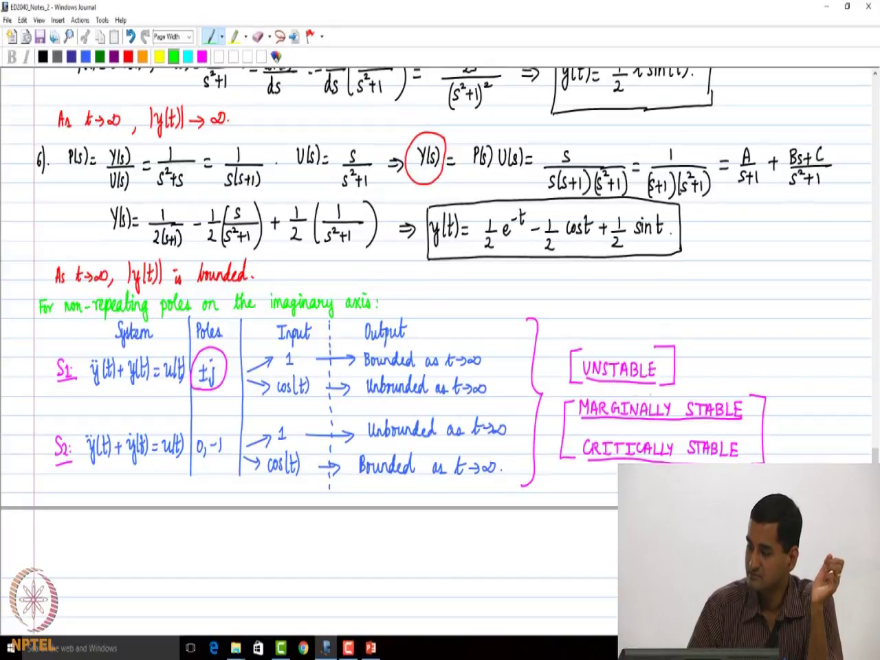 ED2040_Notes_2 - Windows Journal
File Edit View Insert Actions Tools Help
Page Width
B I
s²+1 ds ds (s²+1) = (s²+1)² ⇒ y(t) = 1/2 t sin(t).
As t→∞, |y(t)| → ∞.
6). P(s) = Y(s)/U(s) = 1/(s²+s) = 1/(s(s+1)) . U(s) = s/(s²+1) ⇒ Y(s) = P(s) U(s) = s/(s(s+1)(s²+1)) = 1/((s+1)(s²+1)) = A/(s+1) + (Bs+C)/(s²+1)
Y(s) = 1/(2(s+1)) - 1/2 (s/(s²+1)) + 1/2 (1/(s²+1)) ⇒ y(t) = 1/2 e^-t - 1/2 cost + 1/2 sint.
As t→∞, |y(t)| is bounded.
For non-repeating poles on the imaginary axis:
System Poles Input Output
S1: ÿ(t) + y(t) = u(t) ±j 1 → Bounded as t→∞
cos(t) → Unbounded as t→∞
[UNSTABLE]
MARGINALLY STABLE
S2: ÿ(t) + ẏ(t) = u(t) 0, -1 1 → Unbounded as t→∞
cos(t) → Bounded as t→∞.
CRITICALLY STABLE
NPTEL
the web and Windows